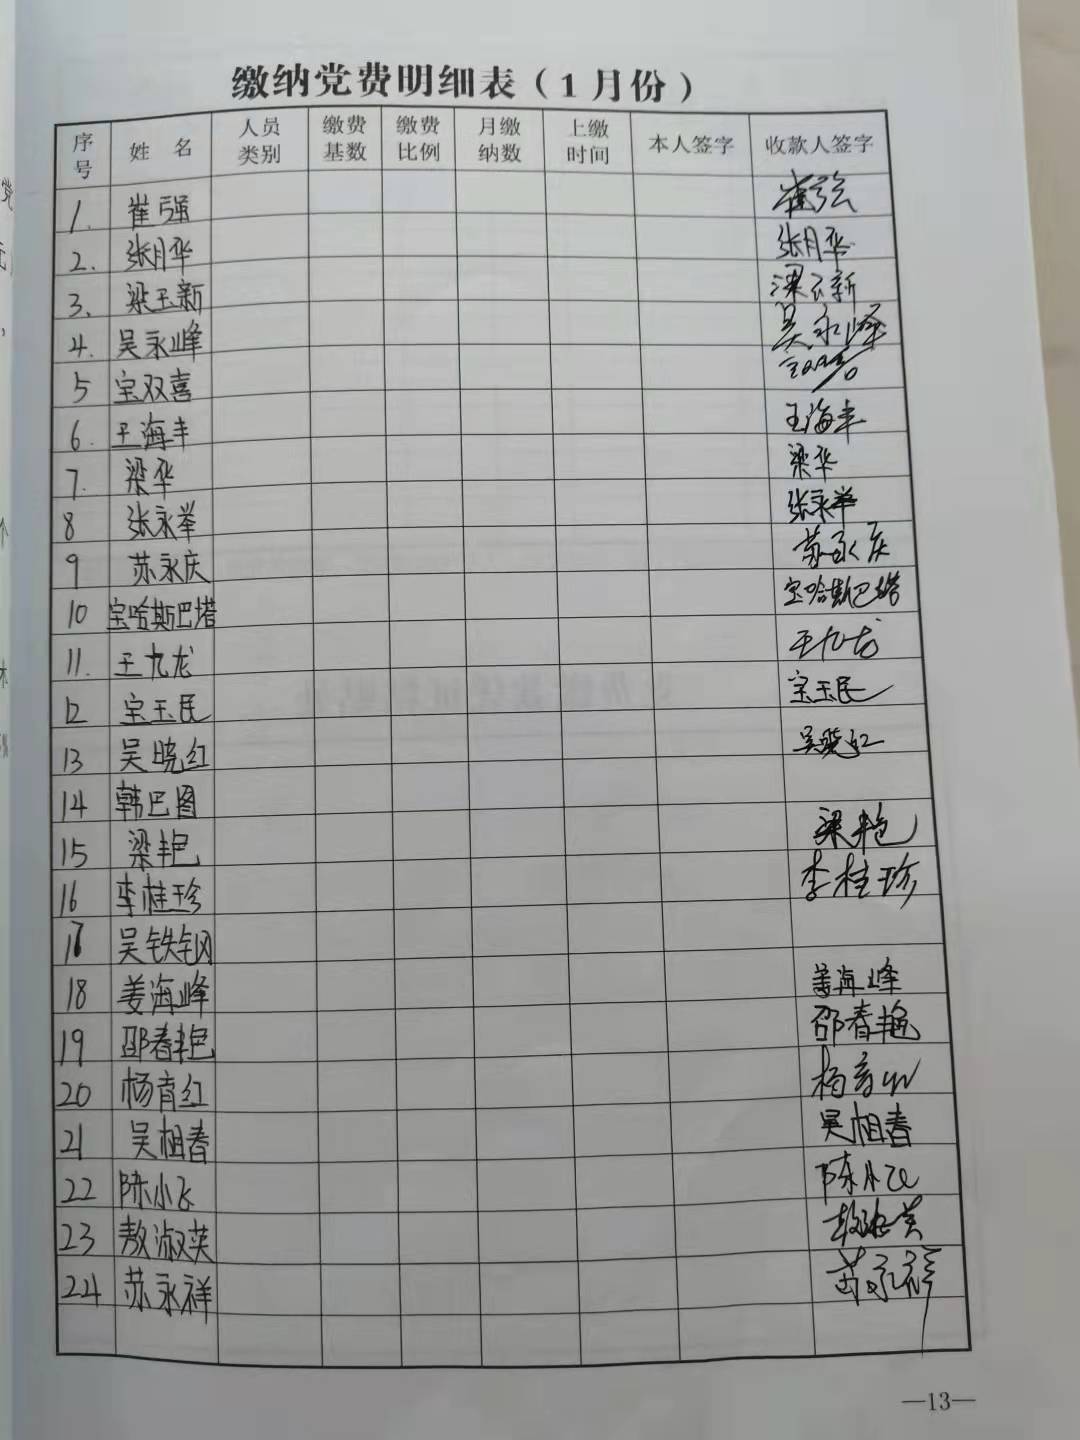 缴纳党费明细表（1月份）
序号 姓 名 人员类别 缴费基数 缴费比例 月缴纳数 上缴时间 本人签字 收款人签字
1. 崔强 崔强
2. 张月华 张月华
3、 梁玉新 梁玉新
4. 吴永峰 吴永峰
5 宝双喜
6. 王海丰 王海丰
7. 梁华 梁华
8 张永举 张永举
9 苏永庆 苏永庆
10 宝哈斯巴塔 宝哈斯巴塔
11. 王九龙 王九龙
12 宝玉民 宝玉民
13 吴晓红 吴晓红
14 韩巴图
15 梁艳 梁艳
16 李桂珍 李桂珍
17 吴铁钢
18 姜海峰 姜海峰
19 邵春艳 邵春艳
20 杨育红 杨育红
21 吴相春 吴相春
22 陈小飞 陈小飞
23 敖淑英 敖淑英
24 苏永祥 苏永祥
—13—